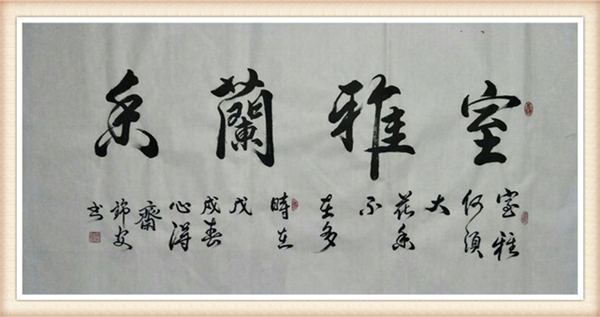 室雅蘭香
室雅
何須
大
花香
不
在多
時在
戊
戌春
心得
齋
书